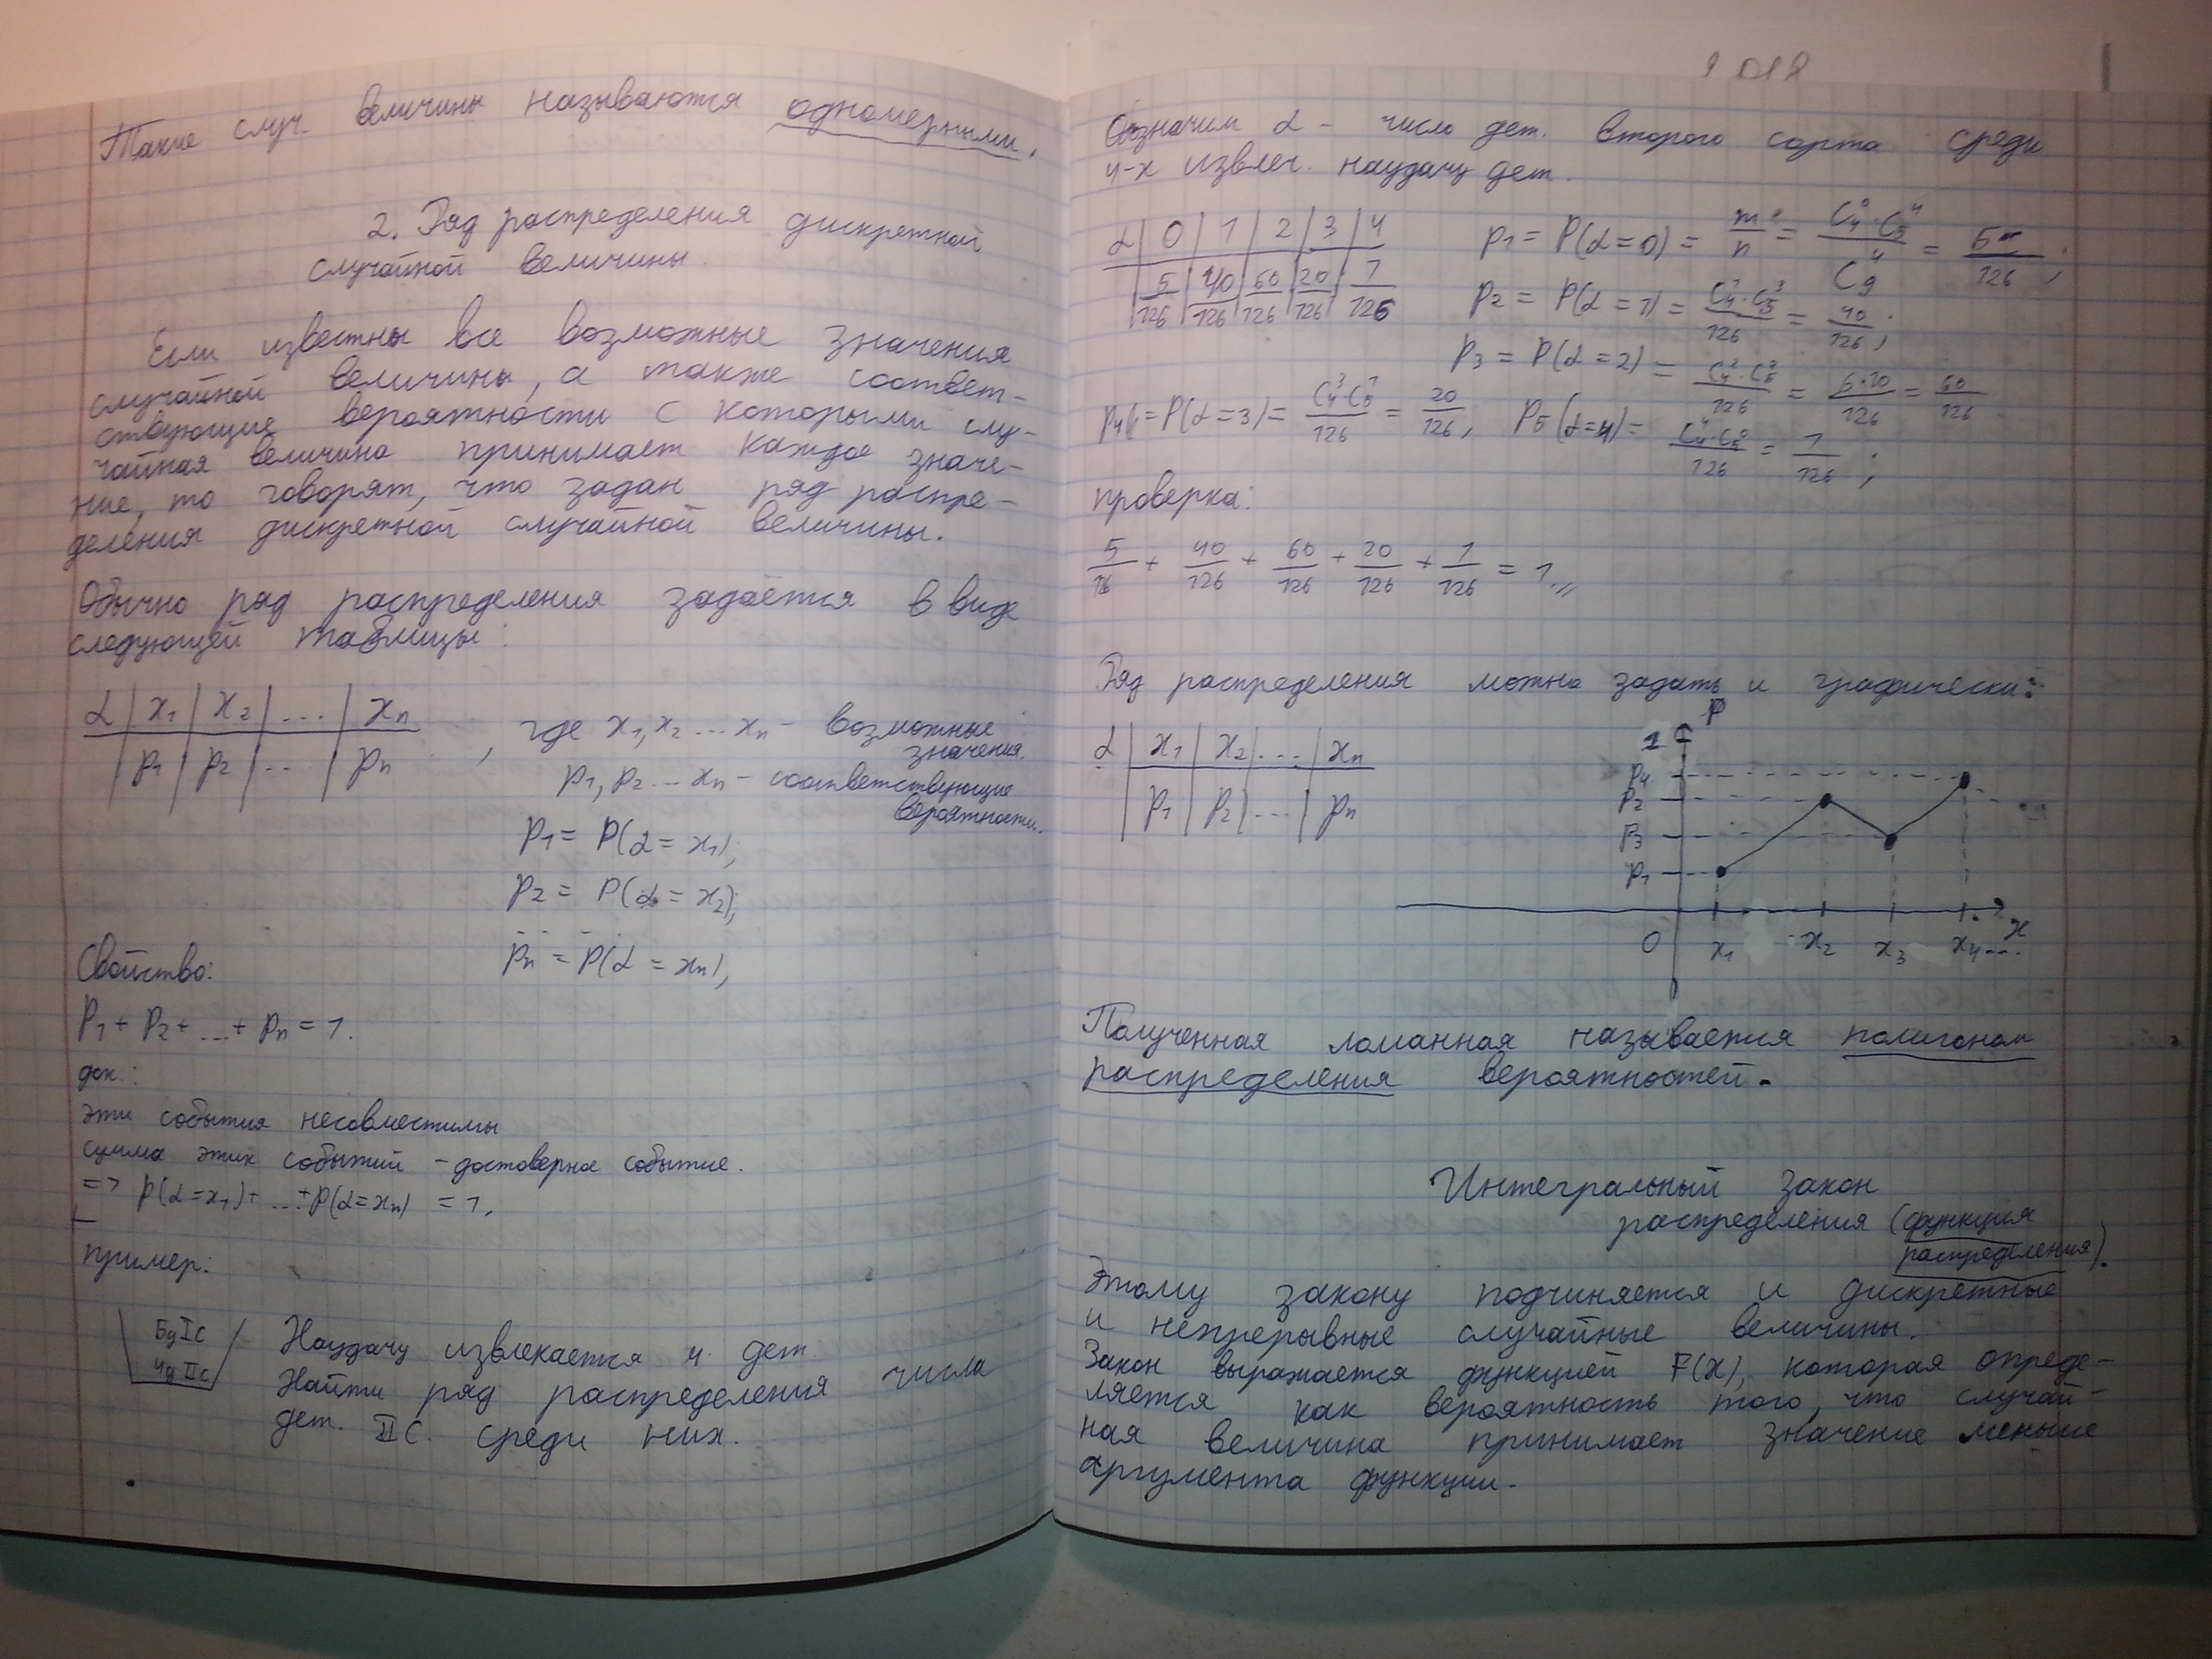 Такие случ. величины называются одномерными.
2. Ряд распределения дискретной
случайной величины.
Если известны все возможные значения
случайной величины, а также соответ-
ствующие вероятности с которыми слу-
чайная величина принимает каждое значе-
ние, то говорят, что задан ряд распре-
деления дискретной случайной величины.
Обычно ряд распределения задаётся в виде
следующей таблицы:
α | x₁ | x₂ | ... | xₙ
p₁ | p₂ | ... | pₙ
, где x₁, x₂ ... xₙ – возможные
значения.
p₁, p₂ ... xₙ – соответствующие
вероятности.
p₁ = P(α = x₁);
p₂ = P(α = x₂);
pₙ = P(α = xₙ),
Свойство:
p₁ + p₂ + ... + pₙ = 1.
док.:
эти события несовместимы
сумма этих событий – достоверное событие.
=> p(α=x₁)+ ... +p(α=xₙ) = 1.
пример:
5д Iс
4д IIс
Наудачу извлекается 4 дет.
Найти ряд распределения числа
дет. IIс. среди них.
Обозначим α – число дет. второго сорта среди
4-х извлеч. наудачу дет.
α | 0 | 1 | 2 | 3 | 4
5/126 | 40/126 | 60/126 | 20/126 | 1/126
p₁ = P(α=0) = m/n = C₄⁰·C₅⁴/C₉⁴ = 5/126;
p₂ = P(α=1) = C₄¹·C₅³/126 = 40/126;
p₃ = P(α=2) = C₄²·C₅²/126 = 6·10/126 = 60/126
p₄ = P(α=3) = C₄³·C₅¹/126 = 20/126, p₅(α=4) = C₄⁴·C₅⁰/126 = 1/126;
проверка:
5/126 + 40/126 + 60/126 + 20/126 + 1/126 = 1,,
Ряд распределения можно задать и графически:
α | x₁ | x₂ | ... | xₙ
p₁ | p₂ | ... | pₙ
P
1
p₄
p₂
p₃
p₁
0 x₁ x₂ x₃ x₄... x
Полученная ломанная называется полигоном
распределения вероятностей.
Интегральный закон
распределения (функция
распределения).
Этому закону подчиняется и дискретные
и непрерывные случайные величины.
Закон выражается функцией F(x), которая опреде-
ляется как вероятность того, что случай-
ная величина принимает значение меньше
аргумента функции.